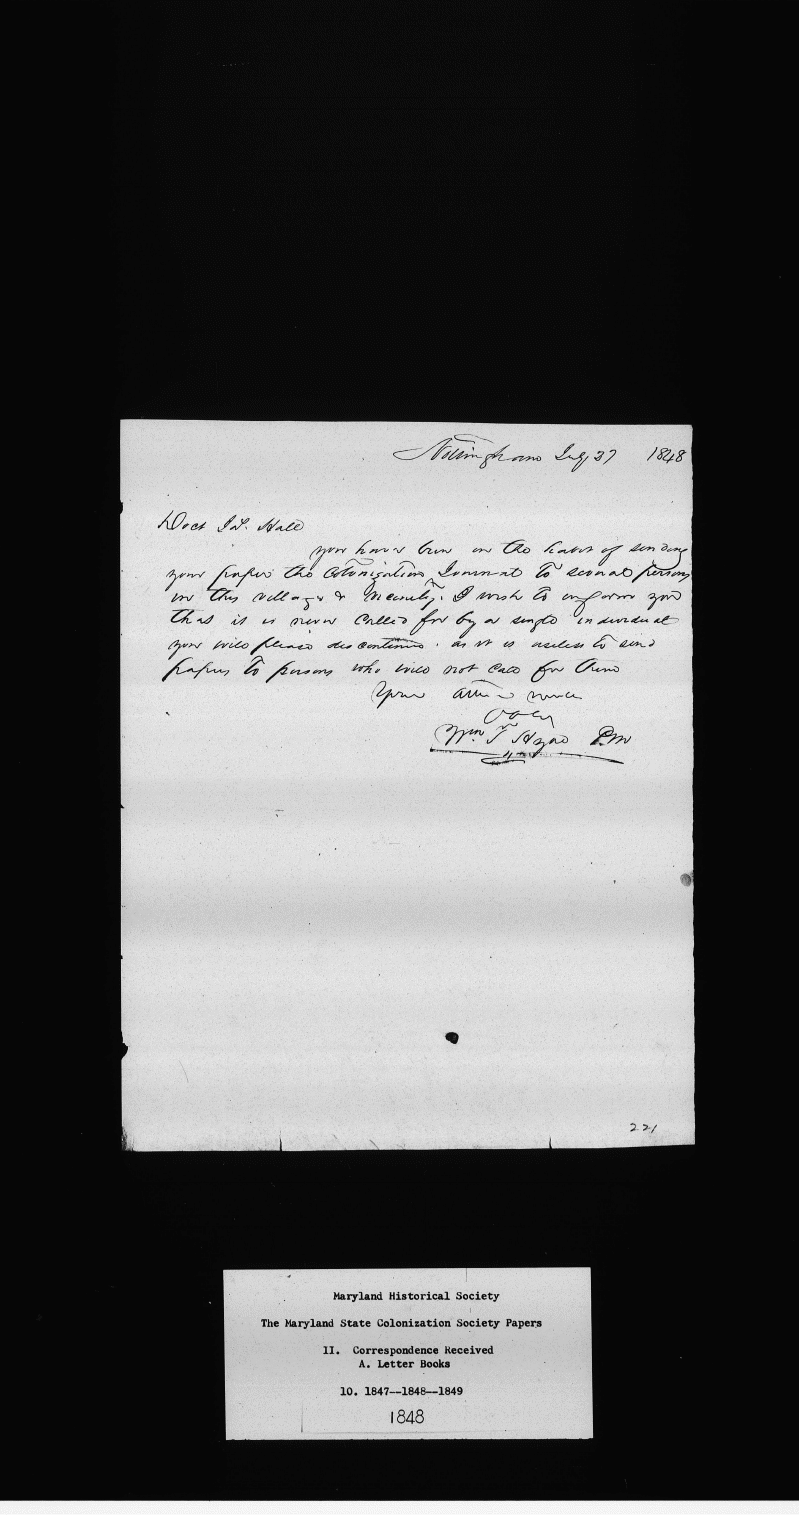 Nottingham July 27 1848
Doct Jas. Hall
you have been in the habit of sending
your paper the Colonization Journal to several persons
in this village & vicinity. I wish to inform you
that it is never called for by a single individual
you will please discontinue. as it is useless to send
papers to persons who will not call for them
Your
Wm T P.M
221
Maryland Historical Society
The Maryland State Colonization Society Papers
II. Correspondence Received
A. Letter Books
10. 1847--1848--1849
1848